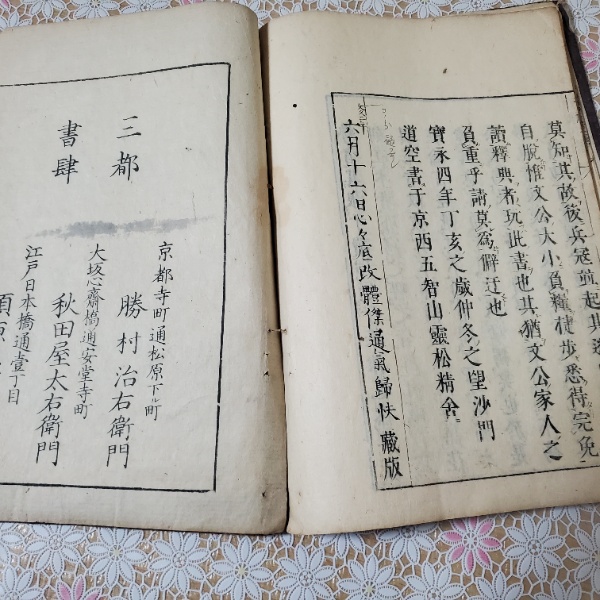 莫知其故後兵冦並起其逃
自脫惟文公大小負糧徒步悉得完免
讀釋典者玩此書也其猶文公家人之
負重乎請莫爲僻迂也
寶永四年丁亥之歲仲冬之望沙門
道空書于京西五智山靈松精舍
六月十六日
改體傑通氣歸快 藏版
三都
書肆
京都寺町通松原下ル町
勝村治右衛門
大坂心齋橋通安堂寺町
秋田屋太右衛門
江戸日本橋通壹丁目
須原